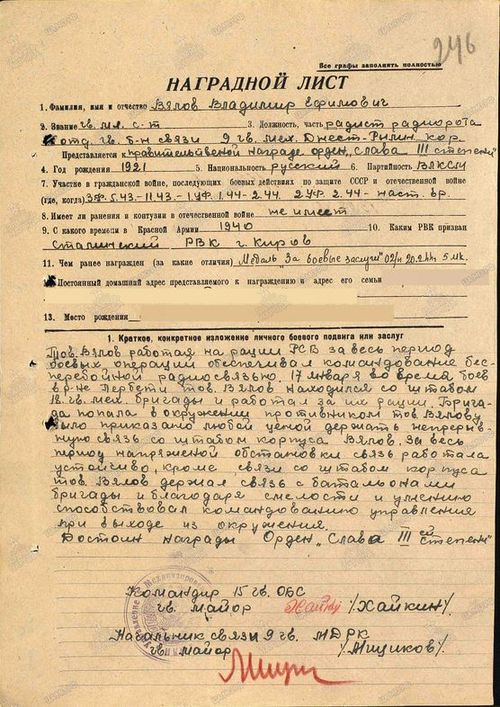 Все графы заполнять полностью
246
НАГРАДНОЙ ЛИСТ
1. Фамилия, имя и отчество Вялов Владимир Ефимович
2. Звание гв. мл. с-т 3. Должность, часть радист радиорота
отд. б-н связи 9 гв. мех. Днест.-Рымн. кор.
Представляется к правительственной награде орден „Слава III степени"
4. Год рождения 1921 5. Национальность русский 6. Партийность ВЛКСМ
7. Участие в гражданской войне, последующих боевых действиях по защите СССР и отечественной войне
(где, когда) 3УФ. 5.43-11.43.-1УФ 1.44-2.44. 2УФ 2.44- наст. вр.
8. Имеет ли ранения и контузии в отечественной войне не имеет
9. С какого времени в Красной Армии 1940 10. Каким РВК призван
Сталинский РВК г. Киров
11. Чем ранее награжден (за какие отличия) Медаль „За боевые заслуги"
12. Постоянный домашний адрес представляемого к награждению и адрес его семьи
13. Место рождения
1. Краткое, конкретное изложение личного боевого подвига или заслуг
Тов. Вялов работая на рации РСБ за весь период
боевых операции обеспечивал командование бес-
перебойной радиосвязью. 17 января во время боев
в р-не Пербети тов. Вялов находился со штабом
18 гв. мех. бригады и работал за их рации. Брига-
да попала в окружении противником тов. Вялову
было приказано любой ценой держать непрерыв-
ную связь со штабом корпуса Вялов. За весь
период напряженной обстановки связь работала
устойчиво, кроме связи со штабом корпуса
тов. Вялов держал связь с батальонами
бригады и благодаря смелости и умению
способствовал командованию управления
при выходе из окружения.
Достоин награды Орден „Слава III ей степени"
Командир 15 гв. ОБС
гв. майор /Хайкин/
Начальник связи 9 гв. МДРК
гв. майор /Мициков/